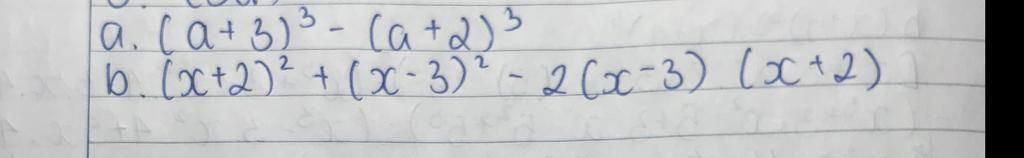 a. (a+3)³ - (a+2)³
b. (x+2)² + (x-3)² - 2(x-3) (x+2)